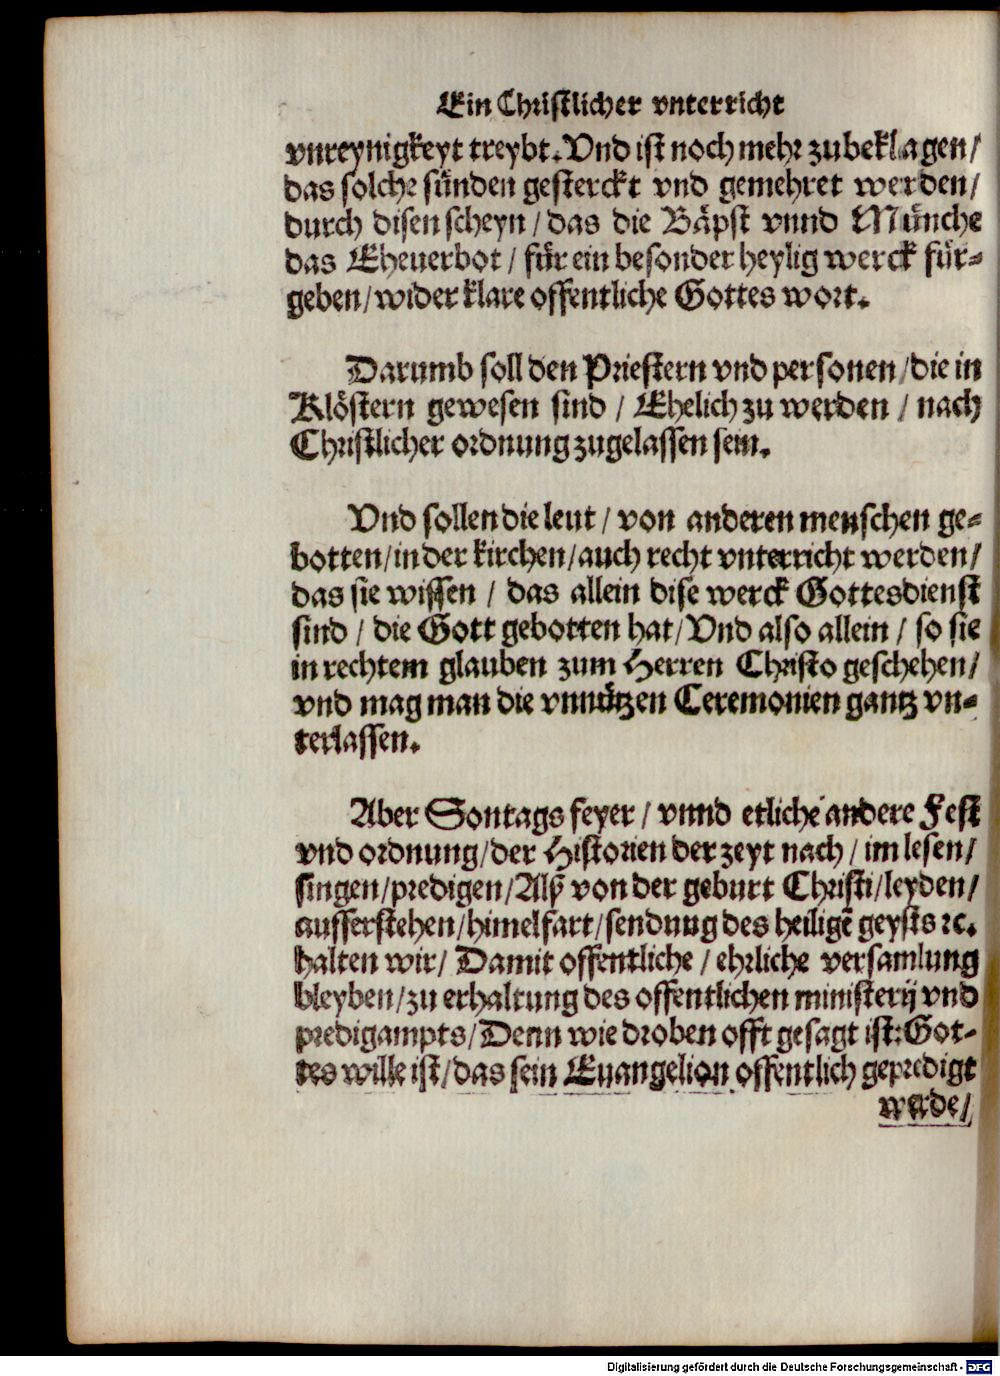 Ein Christlicher vnterricht
vnreynigkeyt treybt. Vnd ist noch mehr zubeklagen/
das solche sünden gesterckt vnd gemehret werden/
durch disen scheyn / das die Bäpst vnnd Münche
das Eheuerbot / für ein besonder heylig werck für-
geben/wider klare offentliche Gottes wort.
Darumb soll den Priestern vnd personen/die in
Klöstern gewesen sind / Ehelich zu werden / nach
Christlicher ordnung zugelassen sein.
Vnd sollen die leut / von anderen menschen ge-
botten/in der kirchen/auch recht vnterricht werden/
das sie wissen / das allein dise werck Gottesdienst
sind / die Gott gebotten hat/Vnd also allein / so sie
in rechtem glauben zum Herren Christo geschehen/
vnd mag man die vnnützen Ceremonien gantz vn-
terlassen.
Aber Sontags feyer / vnnd etliche andere Fest
vnd ordnung/der Historien der zeyt nach / im lesen/
singen/predigen/Alß von der geburt Christi/leyden/
aufferstehen/himelfart/sendung des heiligẽ geysts ꝛc.
halten wir/ Damit offentliche / ehrliche versamlung
bleyben/zu erhaltung des offentlichen ministerij vnd
predigampts/Denn wie droben offt gesagt ist: Got-
tes wille ist/das sein Euangelion offentlich gepredigt
werde/
Digitalisierung gefördert durch die Deutsche Forschungsgemeinschaft - DFG